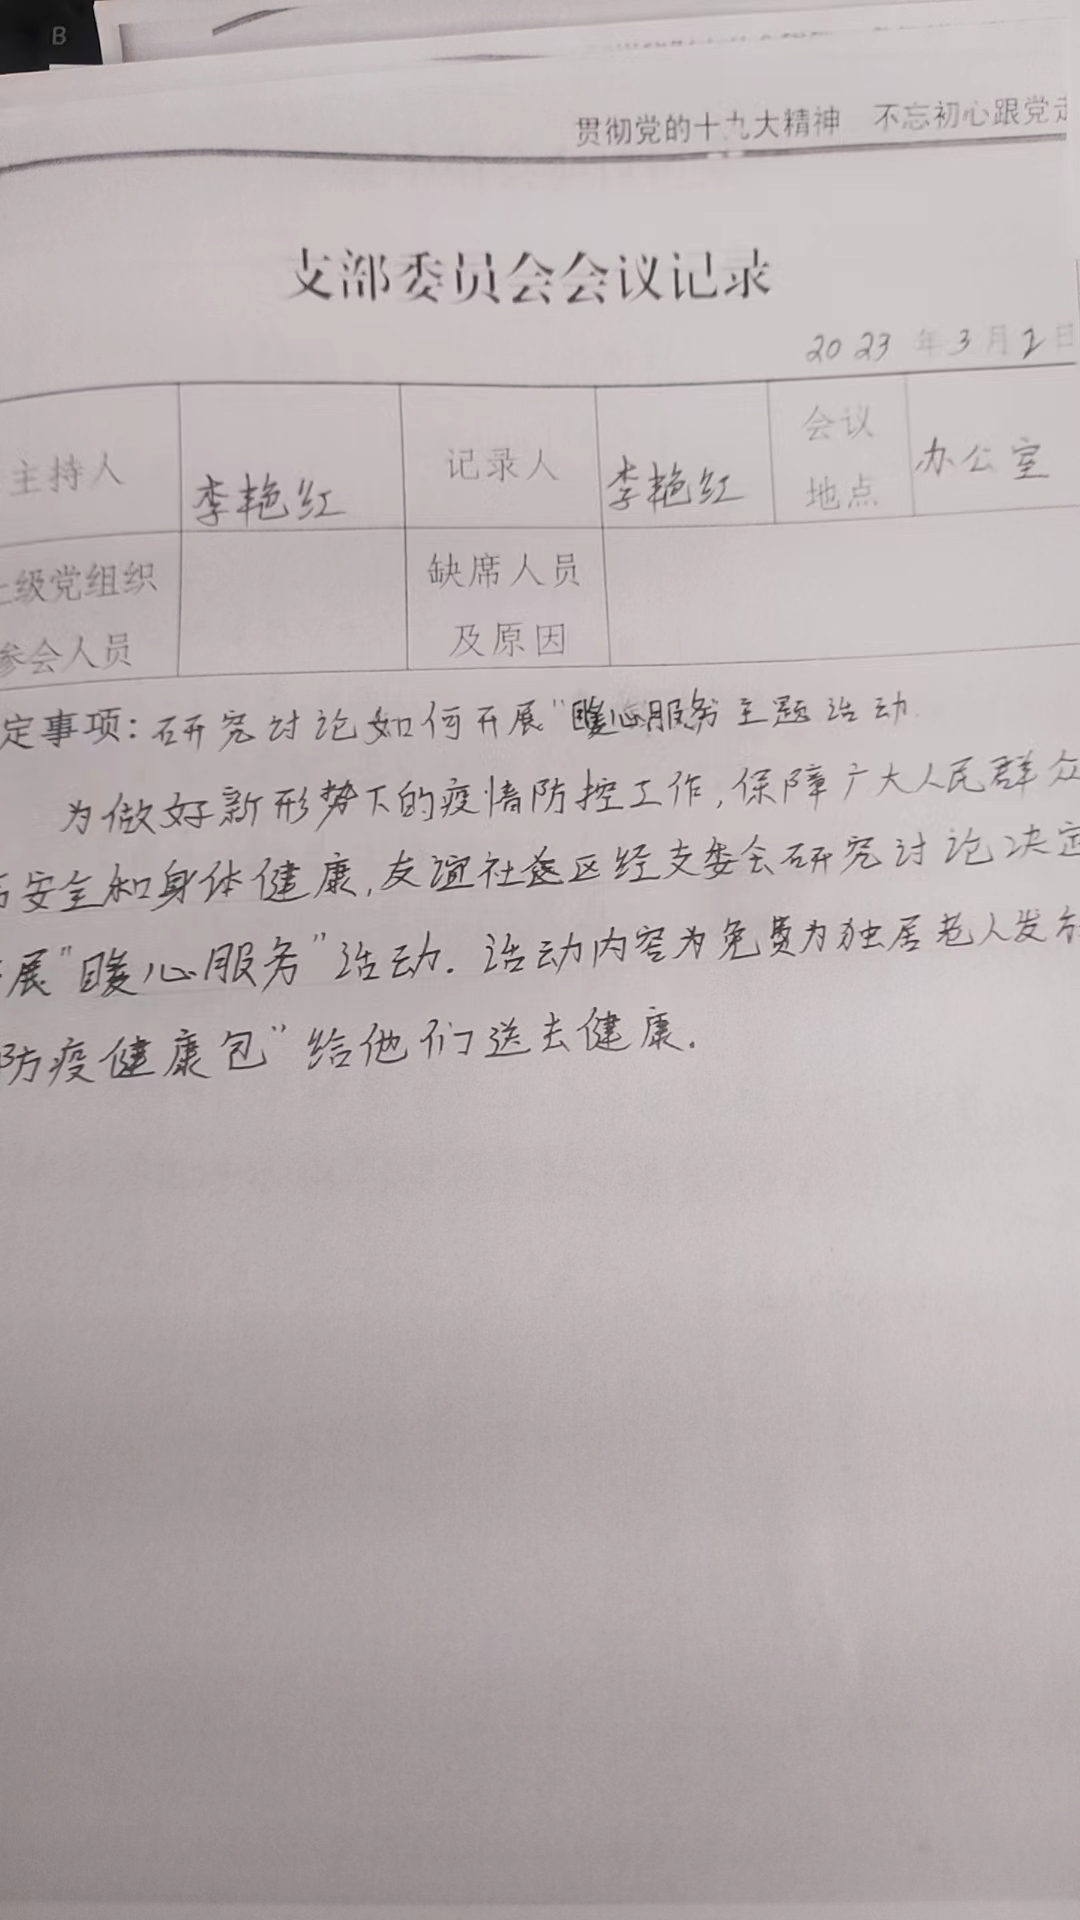 B
贯彻党的十九大精神 不忘初心跟党走
支部委员会会议记录
2023 年 3 月 2 日
主持人 李艳红 记录人 李艳红 会议地点 办公室
级党组织参会人员 缺席人员及原因
定事项：研究讨论如何开展“暖心服务主题活动.
为做好新形势下的疫情防控工作，保障广大人民群众
安全和身体健康，友谊社区经支委会研究讨论决定
展“暖心服务”活动．活动内容为免费为独居老人发放
防疫健康包”给他们送去健康．